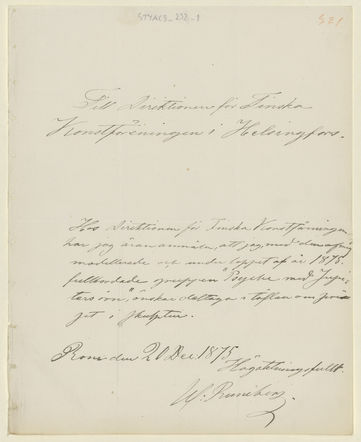 STYACS_232_1
521
Till Direktionen för Finska
Konstföreningen i Helsingfors.
Hos Direktionen för Finska Konstföreningen
har jag äran anmäla, att jag med den af mig
modellerade och under loppet af år 1875
fullbordade gruppen "Psyche med Jupi-
ters örn" önskar deltaga i täflan om pri-
set i skulptur.
Rom den 20 Dec. 1875
Högaktningsfullt.
W. Runeberg.